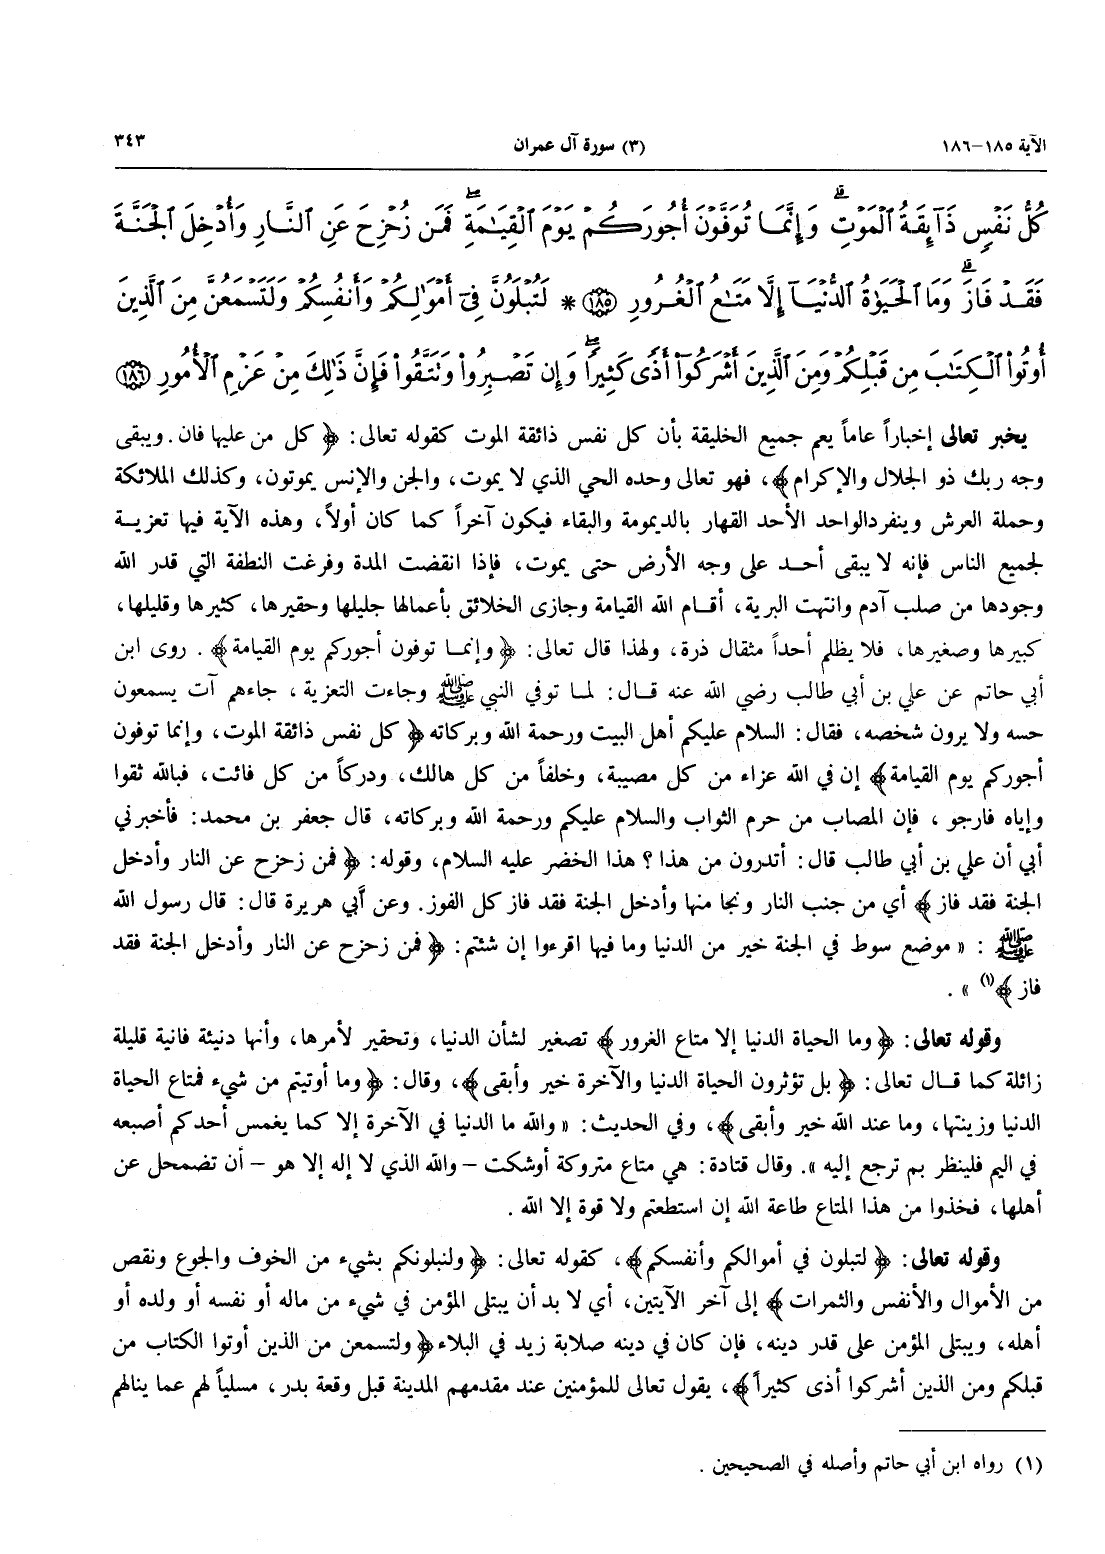 الآية ١٨٥-١٨٦ (٣) سورة آل عمران ٣٤٣
كُلُّ نَفْسٍ ذَآئِقَةُ ٱلْمَوْتِ ۗ وَإِنَّمَا تُوَفَّوْنَ أُجُورَكُمْ يَوْمَ ٱلْقِيَـٰمَةِ ۖ فَمَن زُحْزِحَ عَنِ ٱلنَّارِ وَأُدْخِلَ ٱلْجَنَّةَ
فَقَدْ فَازَ ۗ وَمَا ٱلْحَيَوٰةُ ٱلدُّنْيَآ إِلَّا مَتَـٰعُ ٱلْغُرُورِ ﴿١٨٥﴾ * لَتُبْلَوُنَّ فِىٓ أَمْوَٰلِكُمْ وَأَنفُسِكُمْ وَلَتَسْمَعُنَّ مِنَ ٱلَّذِينَ
أُوتُوا۟ ٱلْكِتَـٰبَ مِن قَبْلِكُمْ وَمِنَ ٱلَّذِينَ أَشْرَكُوٓا۟ أَذًى كَثِيرًا ۚ وَإِن تَصْبِرُوا۟ وَتَتَّقُوا۟ فَإِنَّ ذَٰلِكَ مِنْ عَزْمِ ٱلْأُمُورِ ﴿١٨٦﴾
يخبر تعالى إخباراً عاماً يعم جميع الخليقة بأن كل نفس ذائقة الموت كقوله تعالى: ﴿ كل من عليها فان . ويبقى
وجه ربك ذو الجلال والإكرام﴾، فهو تعالى وحده الحي الذي لا يموت، والجن والإنس يموتون، وكذلك الملائكة
وحملة العرش وينفردالواحد الأحد القهار بالديمومة والبقاء فيكون آخراً كما كان أولاً، وهذه الآية فيها تعزيـة
لجميع الناس فإنه لا يبقى أحـد على وجه الأرض حتى يموت، فإذا انقضت المدة وفرغت النطفة التي قدر الله
وجودها من صلب آدم وانتهت البرية، أقـام الله القيامة وجازى الخلائق بأعمالها جليلها وحقيرها، كثيرها وقليلها،
كبيرها وصغيرها، فلا يظلم أحداً مثقال ذرة، ولهذا قال تعالى: ﴿ وإنمـا توفون أجوركم يوم القيامة﴾ . روى ابن
أبي حاتم عن علي بن أبي طالب رضي الله عنه قـال: لمـا توفي النبي ﷺ وجاءت التعزية، جاءهم آت يسمعون
حسه ولا يرون شخصه، فقال: السلام عليكم أهل البيت ورحمة الله وبركاته ﴿ كل نفس ذائقة الموت، وإنما توفون
أجوركم يوم القيامة﴾ إن في الله عزاء من كل مصيبة، وخلفاً من كل هالك، ودركاً من كل فائت، فبالله ثقوا
وإياه فارجو ، فإن المصاب من حرم الثواب والسلام عليكم ورحمة الله وبركاته، قال جعفر بن محمد: فأخبرني
أبي أن علي بن أبي طالب قال: أتدرون من هذا؟ هذا الخضر عليه السلام، وقوله: ﴿ فمن زحزح عن النار وأدخل
الجنة فقد فاز﴾ أي من جنب النار ونجا منها وأدخل الجنة فقد فاز كل الفوز. وعن أبي هريرة قال: قال رسول الله
ﷺ : « موضع سوط في الجنة خير من الدنيا وما فيها اقرءوا إن شئتم: ﴿ فمن زحزح عن النار وأدخل الجنة فقد
فاز ﴾(١) » .
وقوله تعالى: ﴿ وما الحياة الدنيا إلا متاع الغرور﴾ تصغير لشأن الدنيا، وتحقير لأمرها، وأنها دنيئة فانية قليلة
زائلة كما قـال تعالى: ﴿ بل تؤثرون الحياة الدنيا والآخرة خير وأبقى﴾، وقال: ﴿ وما أوتيتم من شيء فمتاع الحياة
الدنيا وزينتها، وما عند الله خير وأبقى﴾، وفي الحديث: « والله ما الدنيا في الآخرة إلا كما يغمس أحدكم أصبعه
في اليم فلينظر بم ترجع إليه ». وقال قتادة: هي متاع متروكة أوشكت – والله الذي لا إله إلا هو – أن تضمحل عن
أهلها، فخذوا من هذا المتاع طاعة الله إن استطعتم ولا قوة إلا الله .
وقوله تعالى: ﴿ لتبلون في أموالكم وأنفسكم﴾، كقوله تعالى: ﴿ ولنبلونكم بشيء من الخوف والجوع ونقص
من الأموال والأنفس والثمرات ﴾ إلى آخر الآيتين، أي لا بد أن يبتلى المؤمن في شيء من ماله أو نفسه أو ولده أو
أهله، ويبتلى المؤمن على قدر دينه، فإن كان في دينه صلابة زيد في البلاء ﴿ ولتسمعن من الذين أوتوا الكتاب من
قبلكم ومن الذين أشركوا أذى كثيراً﴾، يقول تعالى للمؤمنين عند مقدمهم المدينة قبل وقعة بدر، مسلياً لهم عما ينالهم
(١) رواه ابن أبي حاتم وأصله في الصحيحين .